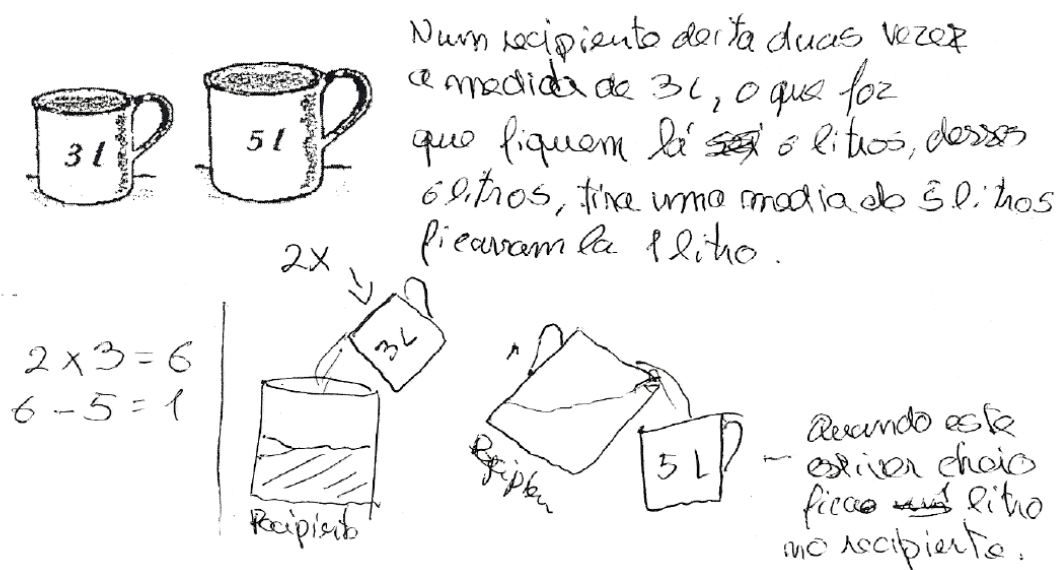 Num recipiente deita duas vezes
a medida de 3L, o que faz
que fiquem lá 6 litros, desses
6 litros, tira uma media de 5 litros
ficavam la 1 litro.
3 l
5 l
2x
3L
Recipiento
2 x 3 = 6
6 - 5 = 1
5 L
- Quando este
estiver cheio
fica litro
no recipiente.